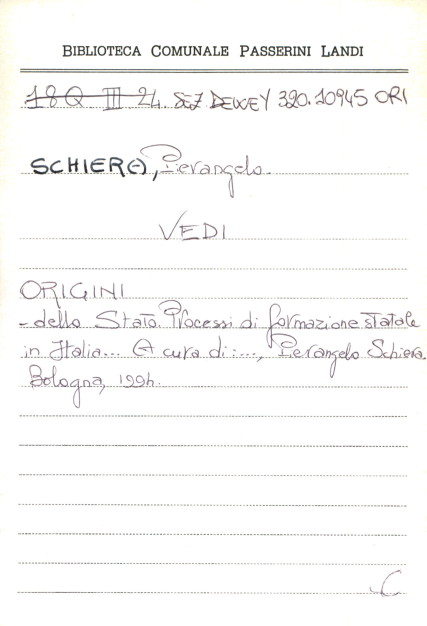 BIBLIOTECA COMUNALE PASSERINI LANDI
18Q III 24. SEZ DEWEY 320.10945 ORI
SCHIERA, Pierangelo.
VEDI
ORIGINI
- dello Stato. Processi di formazione statale
in Italia... A cura di:..., Pierangelo Schiera.
Bologna, 1994.
C